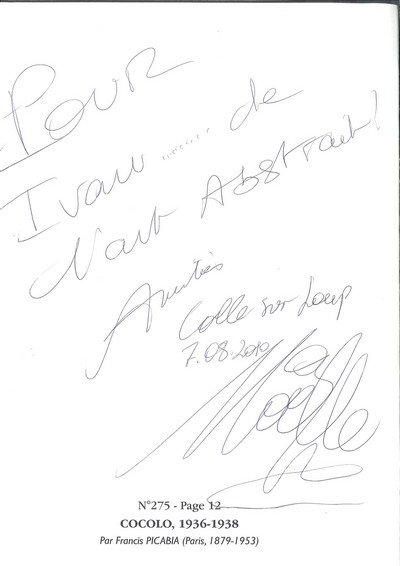 POUR
Ivan ........ de
l'art Abstrait!
Amitiés
Colle sur Loup
7.08.2010
Noëlle
N°275 - Page 12
COCOLO, 1936-1938
Par Francis PICABIA (Paris, 1879-1953)